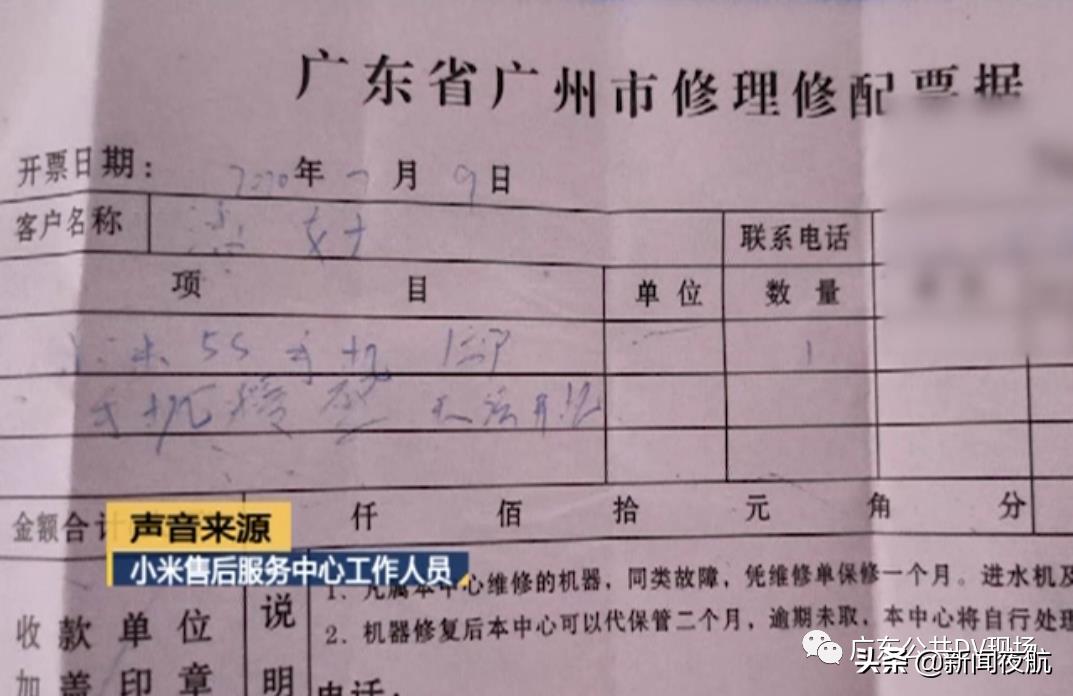 广东省广州市修理修配票据
开票日期： 2020年 月 9日
客户名称 女士 联系电话
项 目 单位 数量
小米5S手机 1部 一 1
手机 无法开机
金额合计 仟 佰 拾 元 角 分
声音来源
小米售后服务中心工作人员
收款单位
加盖印章
说明
1、凡属本中心维修的机器，同类故障，凭维修单保修一个月。进水机及
2、机器修复后本中心可以代保管二个月，逾期未取，本中心将自行处理
电话：
广东公共DV现场
头条 @新闻夜航